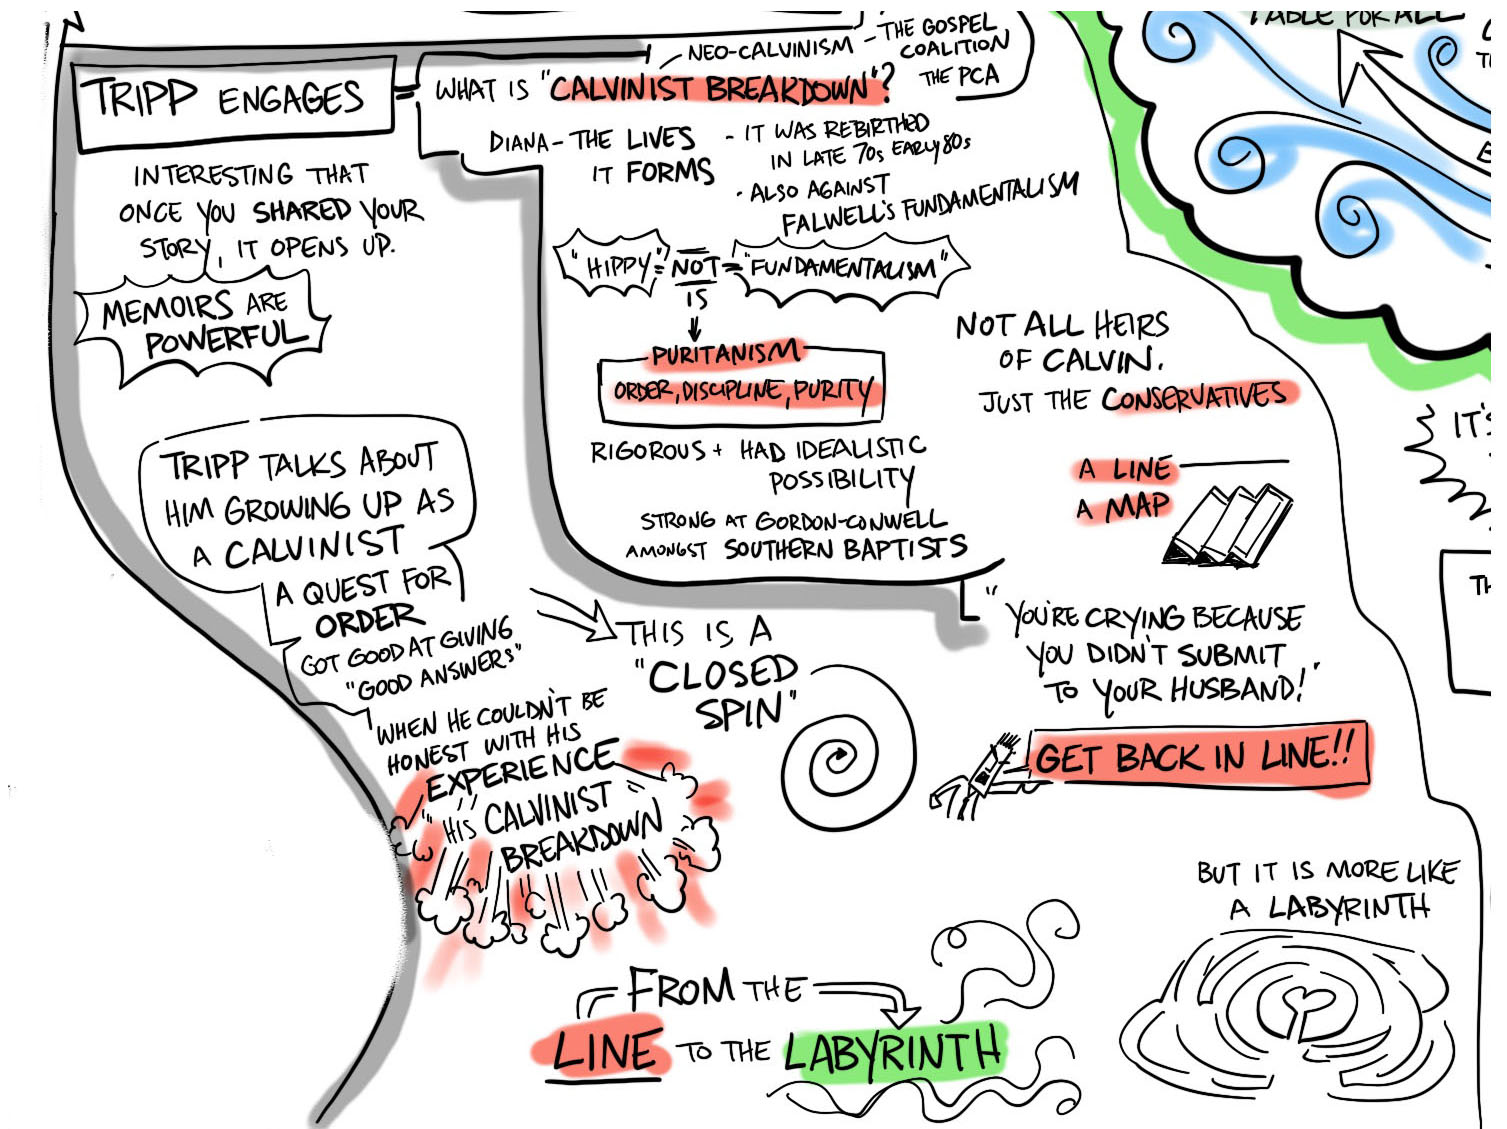 TRIPP ENGAGES
INTERESTING THAT
ONCE YOU SHARED YOUR
STORY, IT OPENS UP.
MEMOIRS ARE
POWERFUL
NEO-CALVINISM - THE GOSPEL
COALITION
THE PCA
WHAT IS "CALVINIST BREAKDOWN"?
DIANA - THE LIVES
IT FORMS
- IT WAS REBIRTHED
IN LATE 70s EARLY 80s
- ALSO AGAINST
FALWELL'S FUNDAMENTALISM
"HIPPY" = NOT = "FUNDAMENTALISM"
IS
PURITANISM
ORDER, DISCIPLINE, PURITY
RIGOROUS + HAD IDEALISTIC
POSSIBILITY
STRONG AT GORDON-CONWELL
AMONGST SOUTHERN BAPTISTS
TRIPP TALKS ABOUT
HIM GROWING UP AS
A CALVINIST
A QUEST FOR
ORDER
GOT GOOD AT GIVING
"GOOD ANSWERS"
WHEN HE COULDN'T BE
HONEST WITH HIS
EXPERIENCE
"HIS CALVINIST
BREAKDOWN
THIS IS A
"CLOSED
SPIN"
NOT ALL HEIRS
OF CALVIN.
JUST THE CONSERVATIVES
A LINE
A MAP
"YOU'RE CRYING BECAUSE
YOU DIDN'T SUBMIT
TO YOUR HUSBAND!"
GET BACK IN LINE!!
BUT IT IS MORE LIKE
A LABYRINTH
FROM THE
LINE TO THE LABYRINTH
TABLE FOR ALL
IT'S
TH